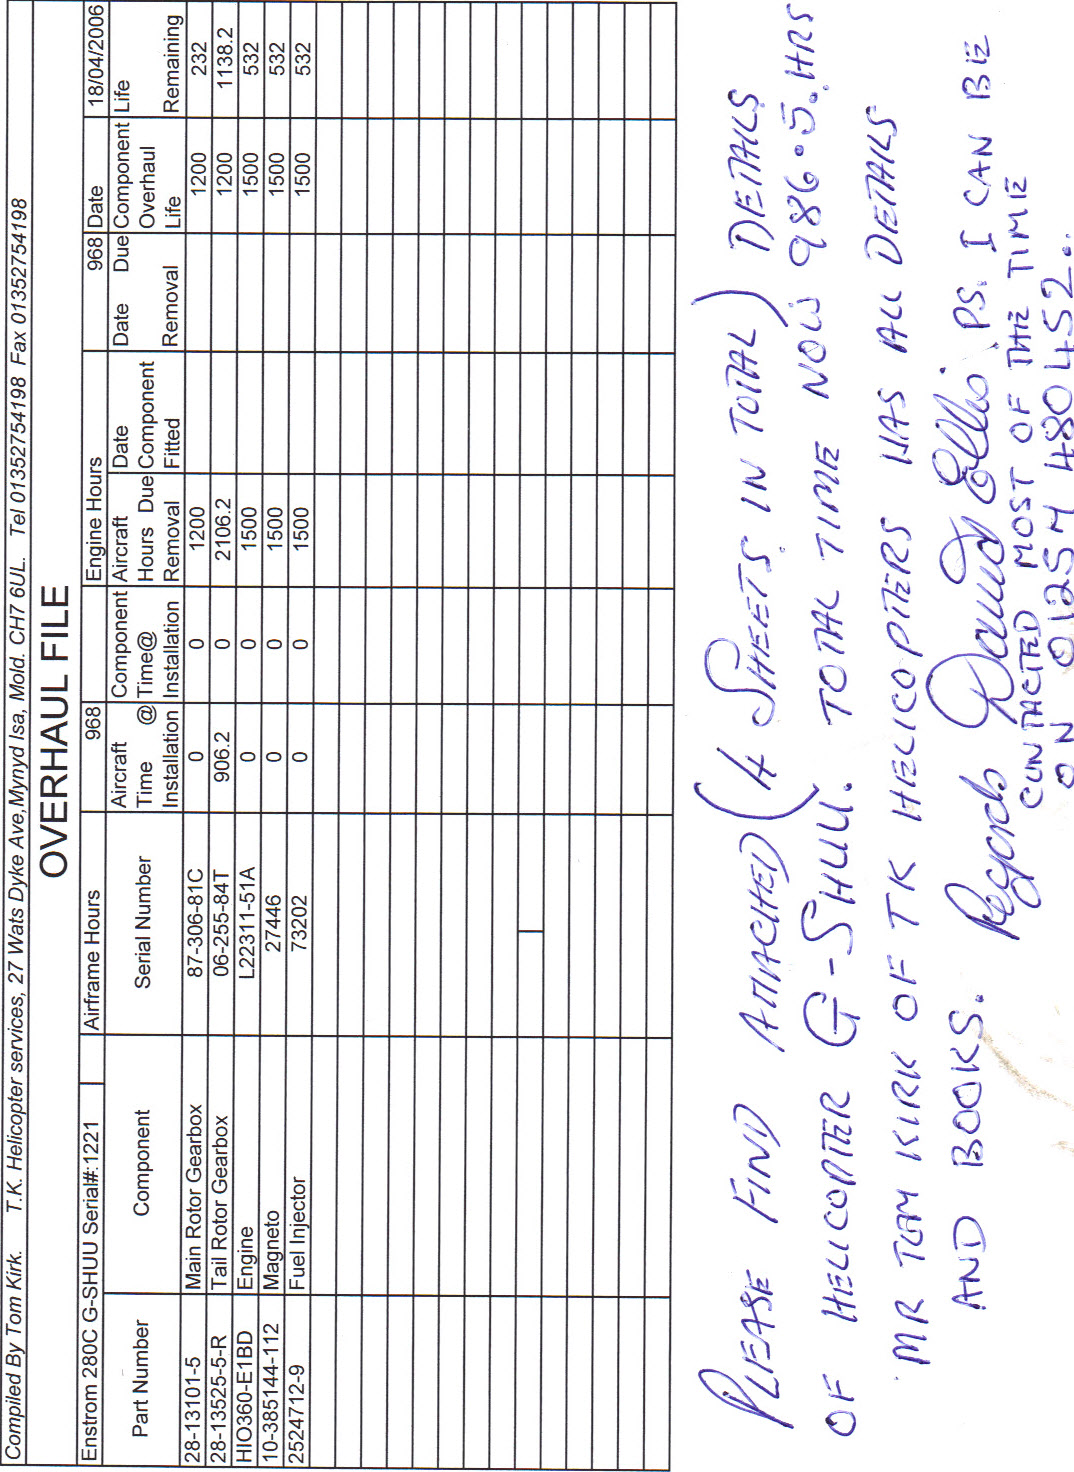 Compiled By Tom Kirk. T.K. Helicopter services, 27 Wats Dyke Ave, Mynyd Isa, Mold. CH7 6UL. Tel 01352754198 Fax 01352754198
OVERHAUL FILE
Enstrom 280C G-SHUU Serial#:1221 Airframe Hours 968 Engine Hours 968 Date 18/04/2006
Part Number Component Serial Number Aircraft Time @ Installation Component Time@ Installation Aircraft Hours Due Removal Date Component Fitted Date Due Removal Component Overhaul Life Life Remaining
28-13101-5 Main Rotor Gearbox 87-306-81C 0 0 1200 1200 232
28-13525-5-R Tail Rotor Gearbox 06-255-84T 906.2 0 2106.2 1200 1138.2
HIO360-E1BD Engine L22311-51A 0 0 1500 1500 532
10-385144-112 Magneto 27446 0 0 1500 1500 532
2524712-9 Fuel Injector 73202 0 0 1500 1500 532
PLEASE FIND ATTACHED (4 SHEETS IN TOTAL) DETAILS
OF HELICOPTER G-SHUU. TOTAL TIME NOW 986.5. HRS
MR TOM KIRK OF TK HELICOPTERS HAS ALL DETAILS
AND BOOKS. Regards David Ellis. PS. I CAN BE
CONTACTED MOST OF THE TIME
ON 01254 480452.